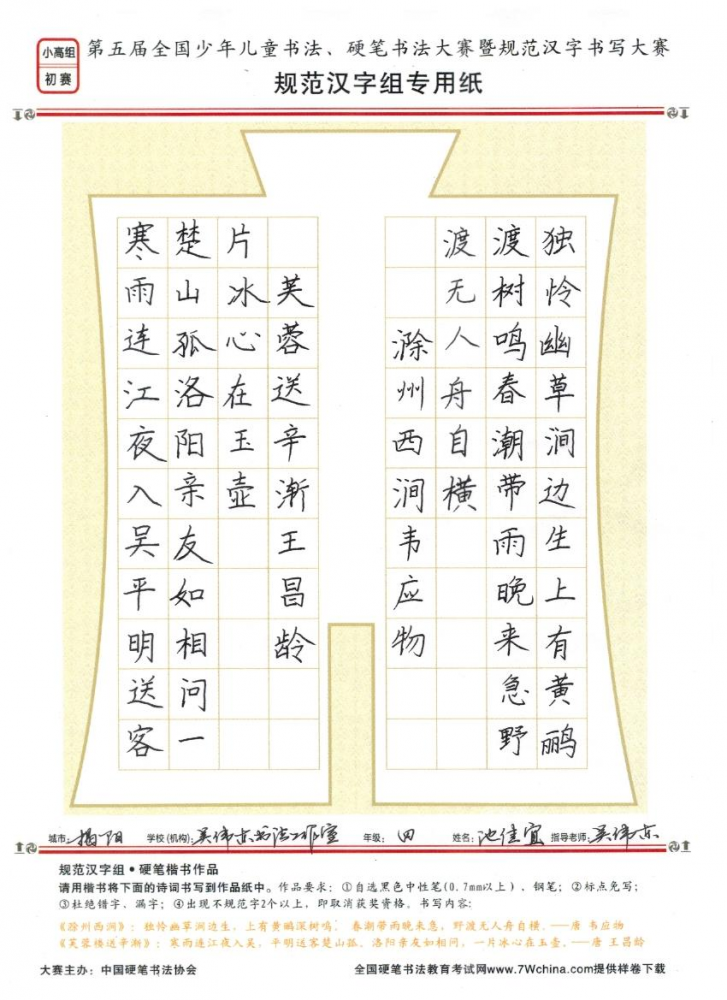 小高组
初赛
第五届全国少年儿童书法、硬笔书法大赛暨规范汉字书写大赛
规范汉字组专用纸
独怜幽草涧边生上有黄鹂
渡树鸣春潮带雨晚来急野
渡无人舟自横
滁州西涧韦应物
寒雨连江夜入吴平明送客
楚山孤洛阳亲友如相问一
片冰心在玉壶
芙蓉送辛渐王昌龄
城市：揭阳 学校(机构)：吴伟亦书法工作室 年级：四 姓名：池佳宜 指导老师：吴伟亦
规范汉字组•硬笔楷书作品
请用楷书将下面的诗词书写到作品纸中。作品要求：①自选黑色中性笔(0.7mm以上)、钢笔；②标点免写；
③杜绝错字、漏字；④出现不规范字2个以上，即取消获奖资格。书写内容：
《滁州西涧》：独怜幽草涧边生，上有黄鹂深树鸣。春潮带雨晚来急，野渡无人舟自横。——唐 韦应物
《芙蓉楼送辛渐》：寒雨连江夜入吴，平明送客楚山孤。洛阳亲友如相问，一片冰心在玉壶。——唐 王昌龄
大赛主办：中国硬笔书法协会
全国硬笔书法教育考试网www.7Wchina.com提供样卷下载